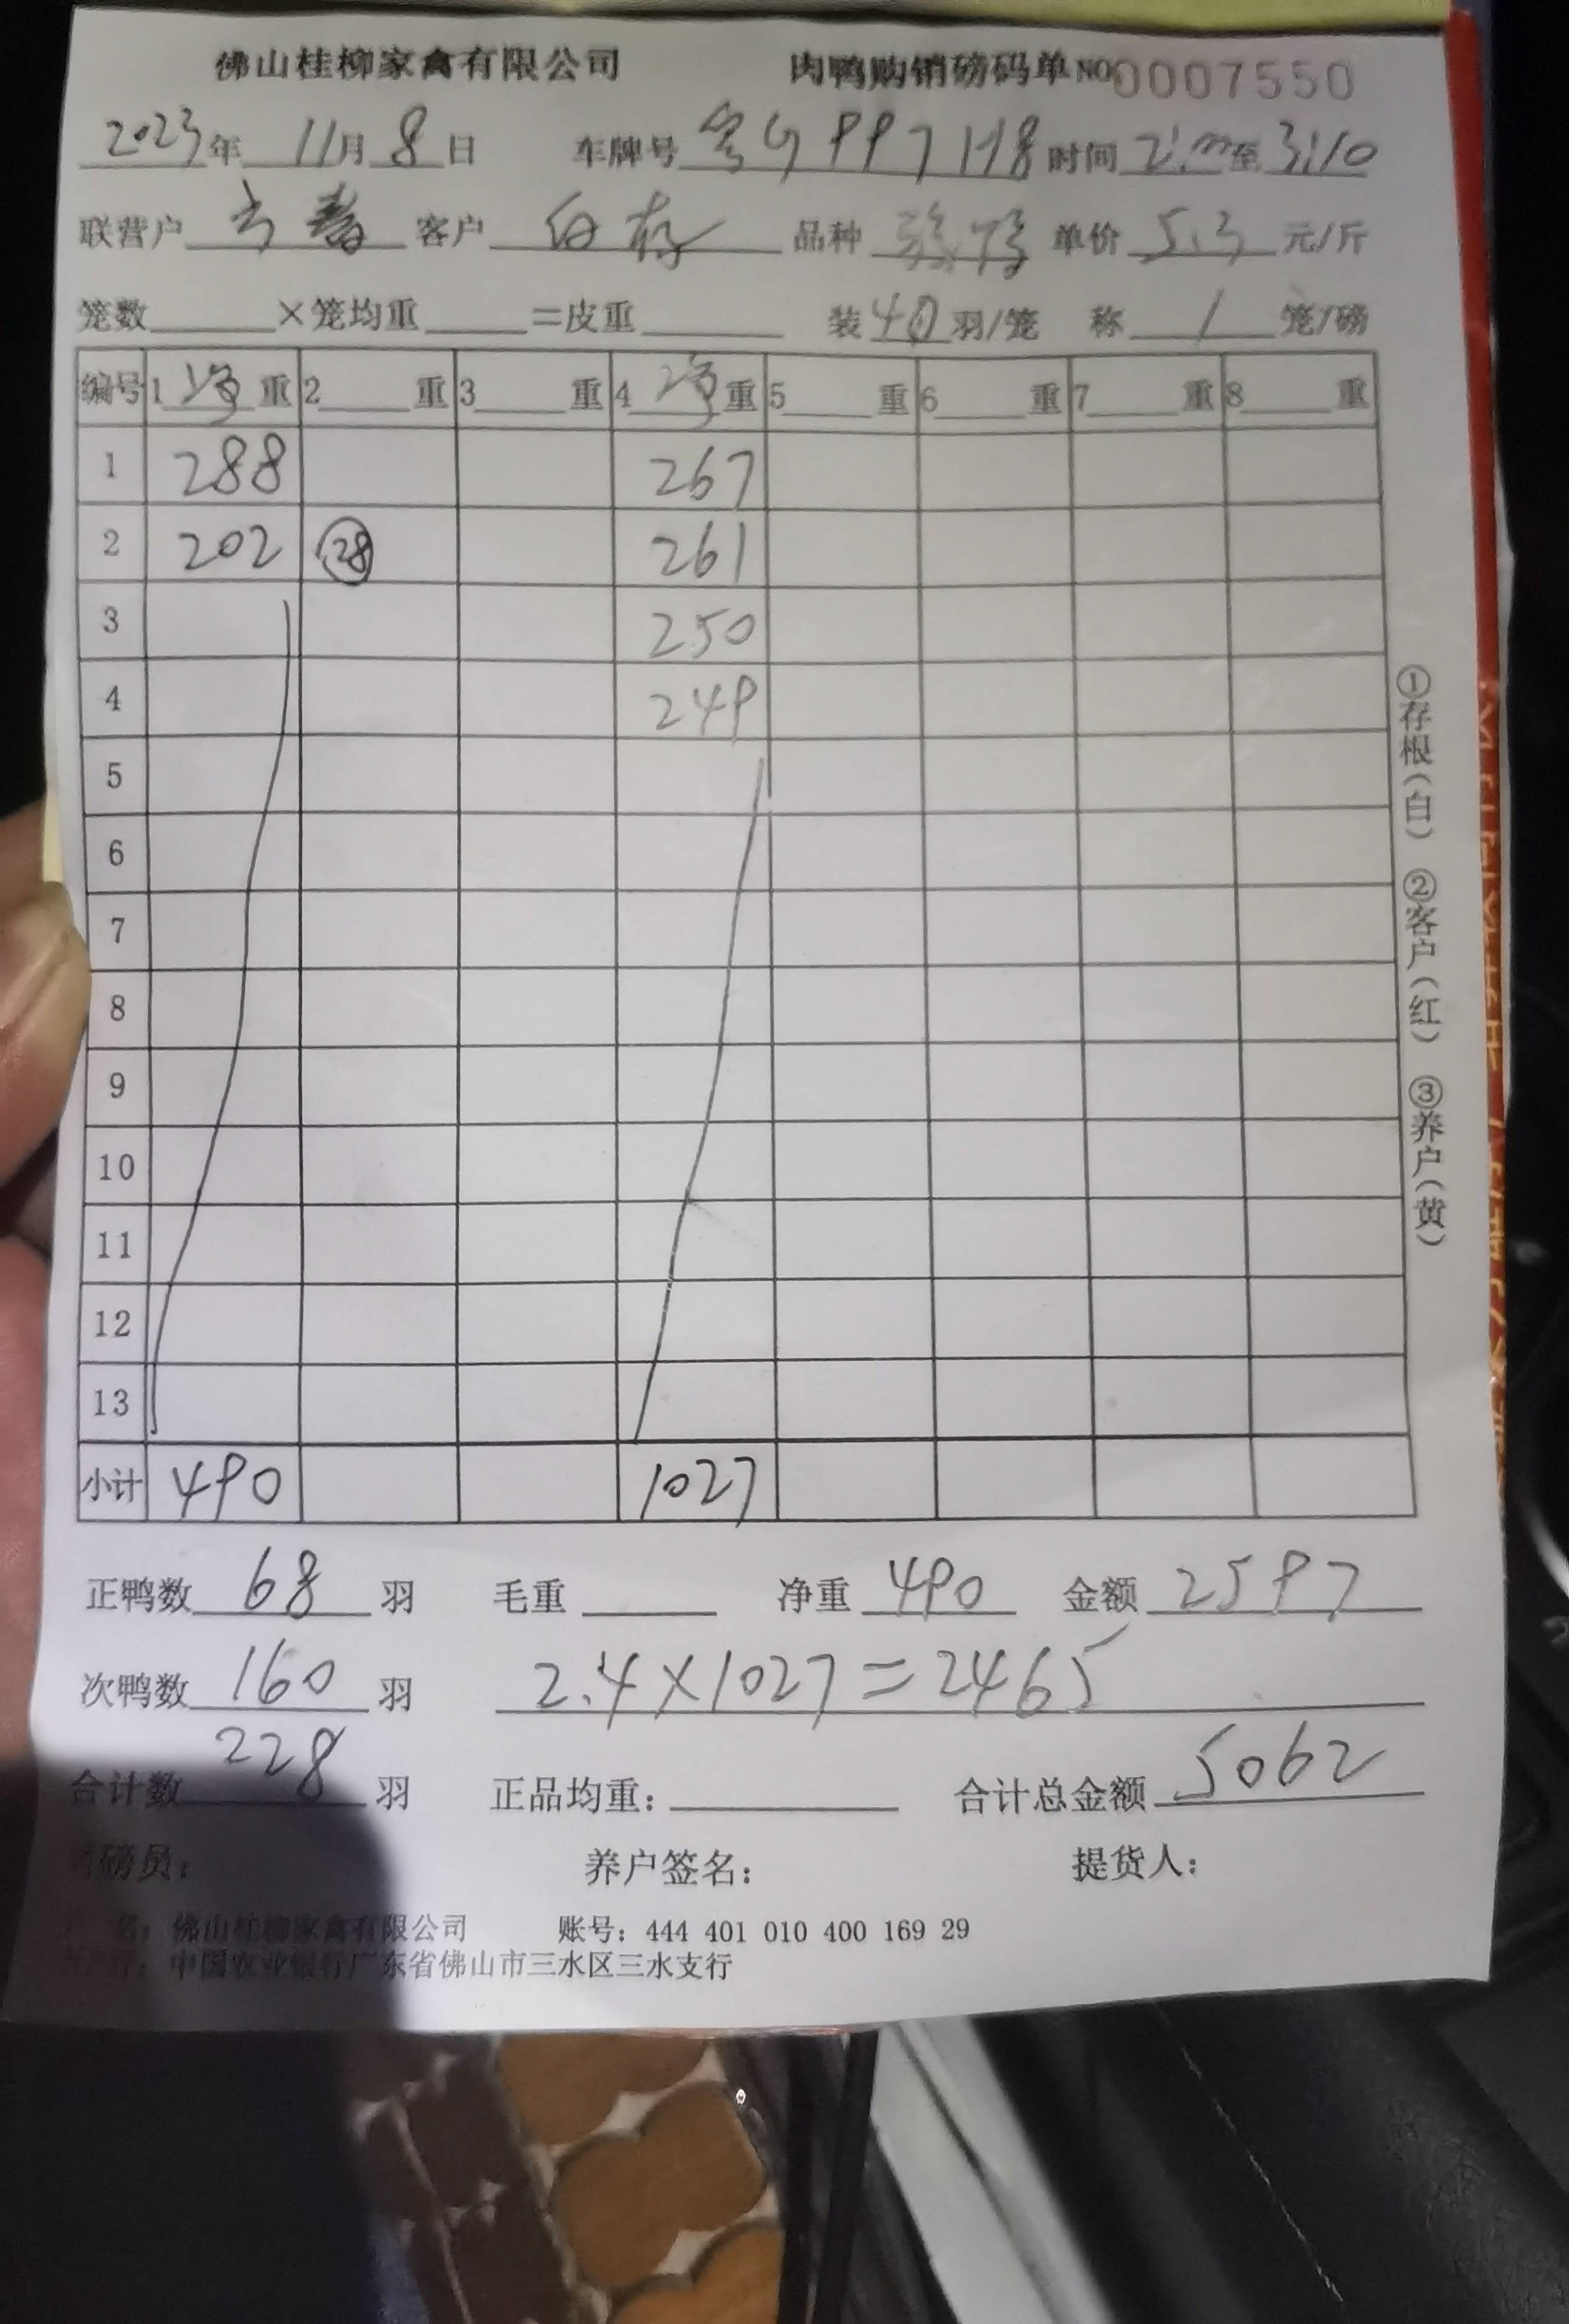 佛山桂柳家禽有限公司 肉鸭购销磅码单 NO 0007550
2023年 11月 8日 车牌号 粤G997H8 时间 2:00 至 3:10
联营户 客户 品种 单价 5.3 元/斤
笼数 ×笼均重 =皮重 装 40 羽/笼 称 1 笼/磅
编号 1 净 重 2 重 3 重 4 净 重 5 重 6 重 7 重 8 重
1 288 267
2 202 28 261
3 250
4 249
5
6
7
8
9
10
11
12
13
小计 490 1027
正鸭数 68 羽 毛重 净重 490 金额 2597
次鸭数 160 羽 2.4×1027=2465
合计数 228 羽 正品均重: 合计总金额 5062
磅员: 养户签名: 提货人:
名: 佛山桂柳家禽有限公司 账号: 444 401 010 400 169 29
中国农业银行广东省佛山市三水区三水支行
①存根(白) ②客户(红) ③养户(黄)